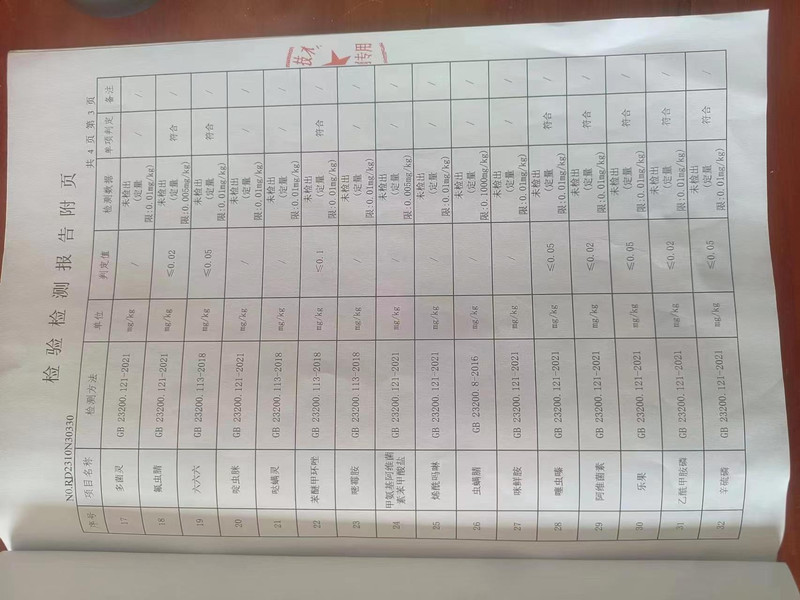 检验检测报告附页
NO.RD2310N30330 共 4 页 第 3 页
序号 项目名称 检测方法 单位 判定值 检测数据 单项判定 备注
17 多菌灵 GB 23200.121-2021 mg/kg / 未检出(定量限:0.01mg/kg) / /
18 氟虫腈 GB 23200.121-2021 mg/kg ≤0.02 未检出(定量限:0.005mg/kg) 符合 /
19 六六六 GB 23200.113-2018 mg/kg ≤0.05 未检出(定量限:0.01mg/kg) 符合 /
20 啶虫脒 GB 23200.121-2021 mg/kg / 未检出(定量限:0.01mg/kg) / /
21 哒螨灵 GB 23200.113-2018 mg/kg / 未检出(定量限:0.01mg/kg) / /
22 苯醚甲环唑 GB 23200.113-2018 mg/kg ≤0.1 未检出(定量限:0.01mg/kg) 符合 /
23 嘧霉胺 GB 23200.113-2018 mg/kg / 未检出(定量限:0.01mg/kg) / /
24 甲氨基阿维菌素苯甲酸盐 GB 23200.121-2021 mg/kg / 未检出(定量限:0.005mg/kg) / /
25 烯酰吗啉 GB 23200.121-2021 mg/kg / 未检出(定量限:0.01mg/kg) / /
26 虫螨腈 GB 23200.8-2016 mg/kg / 未检出(定量限:0.1000mg/kg) / /
27 咪鲜胺 GB 23200.121-2021 mg/kg / 未检出(定量限:0.01mg/kg) / /
28 噻虫嗪 GB 23200.121-2021 mg/kg ≤0.05 未检出(定量限:0.01mg/kg) 符合 /
29 阿维菌素 GB 23200.121-2021 mg/kg ≤0.02 未检出(定量限:0.01mg/kg) 符合 /
30 乐果 GB 23200.121-2021 mg/kg ≤0.05 未检出(定量限:0.01mg/kg) 符合 /
31 乙酰甲胺磷 GB 23200.121-2021 mg/kg ≤0.02 未检出(定量限:0.01mg/kg) 符合 /
32 辛硫磷 GB 23200.121-2021 mg/kg ≤0.05 未检出(定量限:0.01mg/kg) 符合 /
专用